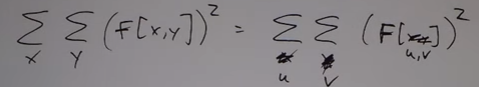 ∑_x ∑_y (f[x,y])² = ∑_u ∑_v (F[u,v])²